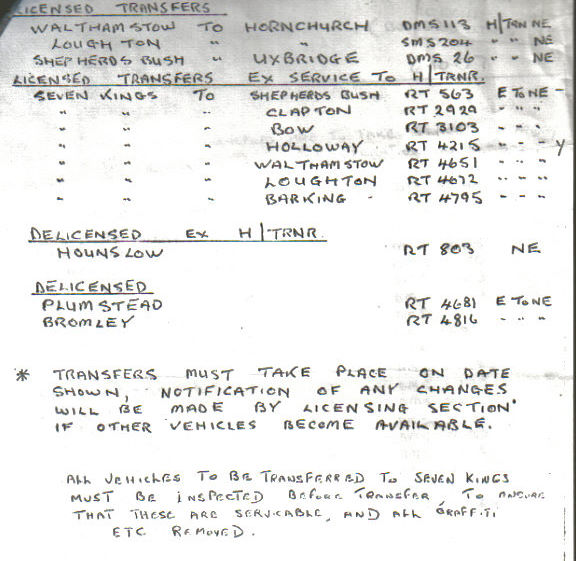 LICENSED TRANSFERS
WALTHAMSTOW TO HORNCHURCH DMS 113 H/TRN NE
LOUGHTON " " SMS 204 " " NE
SHEPHERDS BUSH " UXBRIDGE DMS 26 " " NE
LICENSED TRANSFERS EX SERVICE TO H/TRNR.
SEVEN KINGS TO SHEPHERDS BUSH RT 563 E TO NE -
" " " CLAPTON RT 2929 " " "
" " " BOW RT 3103 " " "
" " " HOLLOWAY RT 4215 " " " Y
" " " WALTHAMSTOW RT 4651 " " "
" " " LOUGHTON RT 4672 " " "
" " " BARKING RT 4795 " " "
DELICENSED EX H/TRNR.
HOUNSLOW RT 803 NE
DELICENSED
PLUMSTEAD RT 4681 E TO NE
BROMLEY RT 4816 " " "
* TRANSFERS MUST TAKE PLACE ON DATE
SHOWN, NOTIFICATION OF ANY CHANGES
WILL BE MADE BY LICENSING SECTION
IF OTHER VEHICLES BECOME AVAILABLE.
ALL VEHICLES TO BE TRANSFERRED TO SEVEN KINGS
MUST BE INSPECTED BEFORE TRANSFER, TO ENSURE
THAT THESE ARE SERVICABLE, AND ALL GRAFFITI
ETC REMOVED.